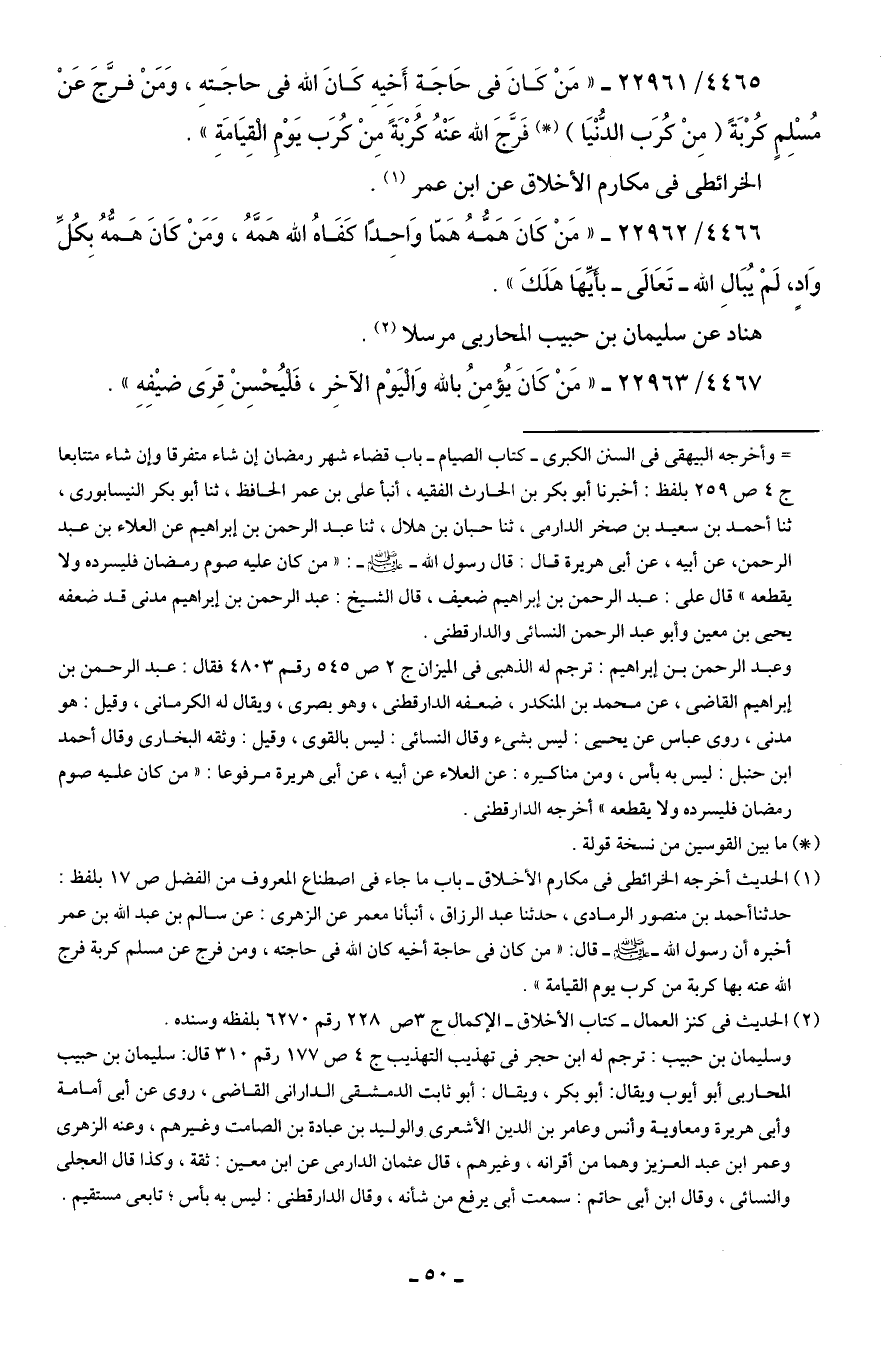 ٤٤٦٥/ ٢٢٩٦١ ـ « مَنْ كَـانَ فى حَاجَـةِ أَخِيهِ كَـانَ الله فى حاجَـتِهِ ، وَمَنْ فـرَّجَ عَنْ
مُسْلِمٍ كُرْبَةً ( مِنْ كُرَبِ الدُّنْيَا ) (*) فَرَّجَ الله عَنْهُ كُرْبَةً مِنْ كُرَبِ يَوْمِ الْقِيَامَةِ » .
الخرائطى فى مكارم الأخلاق عن ابن عمر (١) .
٤٤٦٦/ ٢٢٩٦٢ ـ « مَنْ كَانَ هَمُّـهُ هَمّا وَاحِـدًا كَفَـاهُ الله هَمَّهُ ، وَمَنْ كَانَ هَـمُّهُ بِكُلِّ
وَادٍ، لَمْ يُبَالِ الله ـ تَعَالَى ـ بِأَيِّهَا هَلَكَ » .
هناد عن سليمان بن حبيب المحاربى مرسلا (٢) .
٤٤٦٧/ ٢٢٩٦٣ ـ « مَنْ كَانَ يُؤمِنُ بالله وَالْيَوْمِ الآخِرِ ، فَلْيُحْسِنْ قِرَى ضيْفِهِ » .
= وأخرجه البيهقى فى السنن الكبرى ـ كتاب الصيام ـ باب قضاء شهر رمضان إن شاء متفرقا وإن شاء متتابعا
ج ٤ ص ٢٥٩ بلفظ : أخبرنا أبو بكر بن الحارث الفقيه ، أنبأ على بن عمر الحافظ ، ثنا أبو بكر النيسابورى ،
ثنا أحمـد بن سعيـد بن صخر الدارمى ، ثنا حـبان بن هلال ، ثنا عبـد الرحمن بن إبراهيم عن العلاء بن عبـد
الرحمن، عن أبيه ، عن أبى هريرة قـال : قال رسول الله ـ ﷺ ـ : « من كان عليه صوم رمـضان فليسرده ولا
يقطعه » قال على : عـبد الرحمن بن إبراهيم ضعيف ، قال الشـيخ : عبد الرحمن بن إبراهيم مدنى قـد ضعفه
يحيى بن معين وأبو عبد الرحمن النسائى والدارقطنى .
وعبـد الرحمن بـن إبراهيم : ترجم له الذهبى فى الميزان ج ٢ ص ٥٤٥ رقـم ٤٨٠٣ فقال : عـبد الرحـمن بن
إبراهيم القاضى ، عن محمد بن المنكدر ، ضعـفه الدارقطنى ، وهو بصرى ، ويقال له الكرمـانى ، وقيل : هو
مدنى ، روى عباس عن يحيـى : ليس بشىء وقال النسائى : ليس بالقوى ، وقيل : وثقه البخـارى وقال أحمد
ابن حنبل : ليس به بأس ، ومن مناكـيره : عن العلاء عن أبيه ، عن أبى هريرة مـرفوعا : « من كان علـيه صوم
رمضان فليسرده ولا يقطعه » أخرجه الدارقطنى .
(*) ما بين القوسين من نسخة قولة .
(١) الحديث أخرجه الخرائطى فى مكارم الأخـلاق ـ باب ما جاء فى اصطناع المعروف من الفضل ص ١٧ بلفظ :
حدثناأحمد بن منصور الرمـادى ، حدثنا عبد الرزاق ، أنبأنا معمر عن الزهرى : عن سـالم بن عبد الله بن عمر
أخبره أن رسول الله ـ ﷺ ـ قال: « من كان فى حاجة أخيه كان الله فى حاجته ، ومن فرج عن مسلم كربة فرج
الله عنه بها كربة من كرب يوم القيامة » .
(٢) الحديث فى كنز العمال ـ كتاب الأخلاق ـ الإكمال ج ٣ص ٢٢٨ رقم ٦٢٧٠ بلفظه وسنده .
وسليمان بن حبيب : ترجم له ابن حجر فى تهذيب التهذيب ج ٤ ص ١٧٧ رقم ٣١٠ قال: سليمان بن حبيب
المحـاربى أبو أيوب ويقال: أبو بكر ، ويقـال : أبو ثابت الدمـشـقى الـدارانى القـاضى ، روى عن أبى أمـامـة
وأبى هريرة ومعاويـة وأنس وعامر بن الدين الأشعرى والوليـد بن عبادة بن الصامت وغـيرهم ، وعنه الزهرى
وعمر ابن عبد العـزيز وهما من أقرانه ، وغيرهم ، قال عثمان الدارمى عن ابن معـين : ثقة ، وكذا قال العجلى
والنسائى ، وقال ابن أبى حاتم : سمعت أبى يرفع من شأنه ، وقال الدارقطنى : ليس به بأس ؛ تابعى مستقيم .
ـ ٥٠ ـ